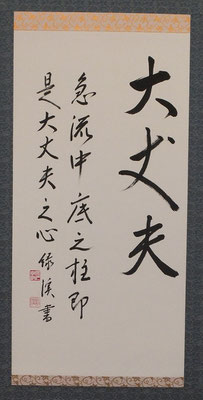 大丈夫
急流中底之柱即
是大丈夫之心